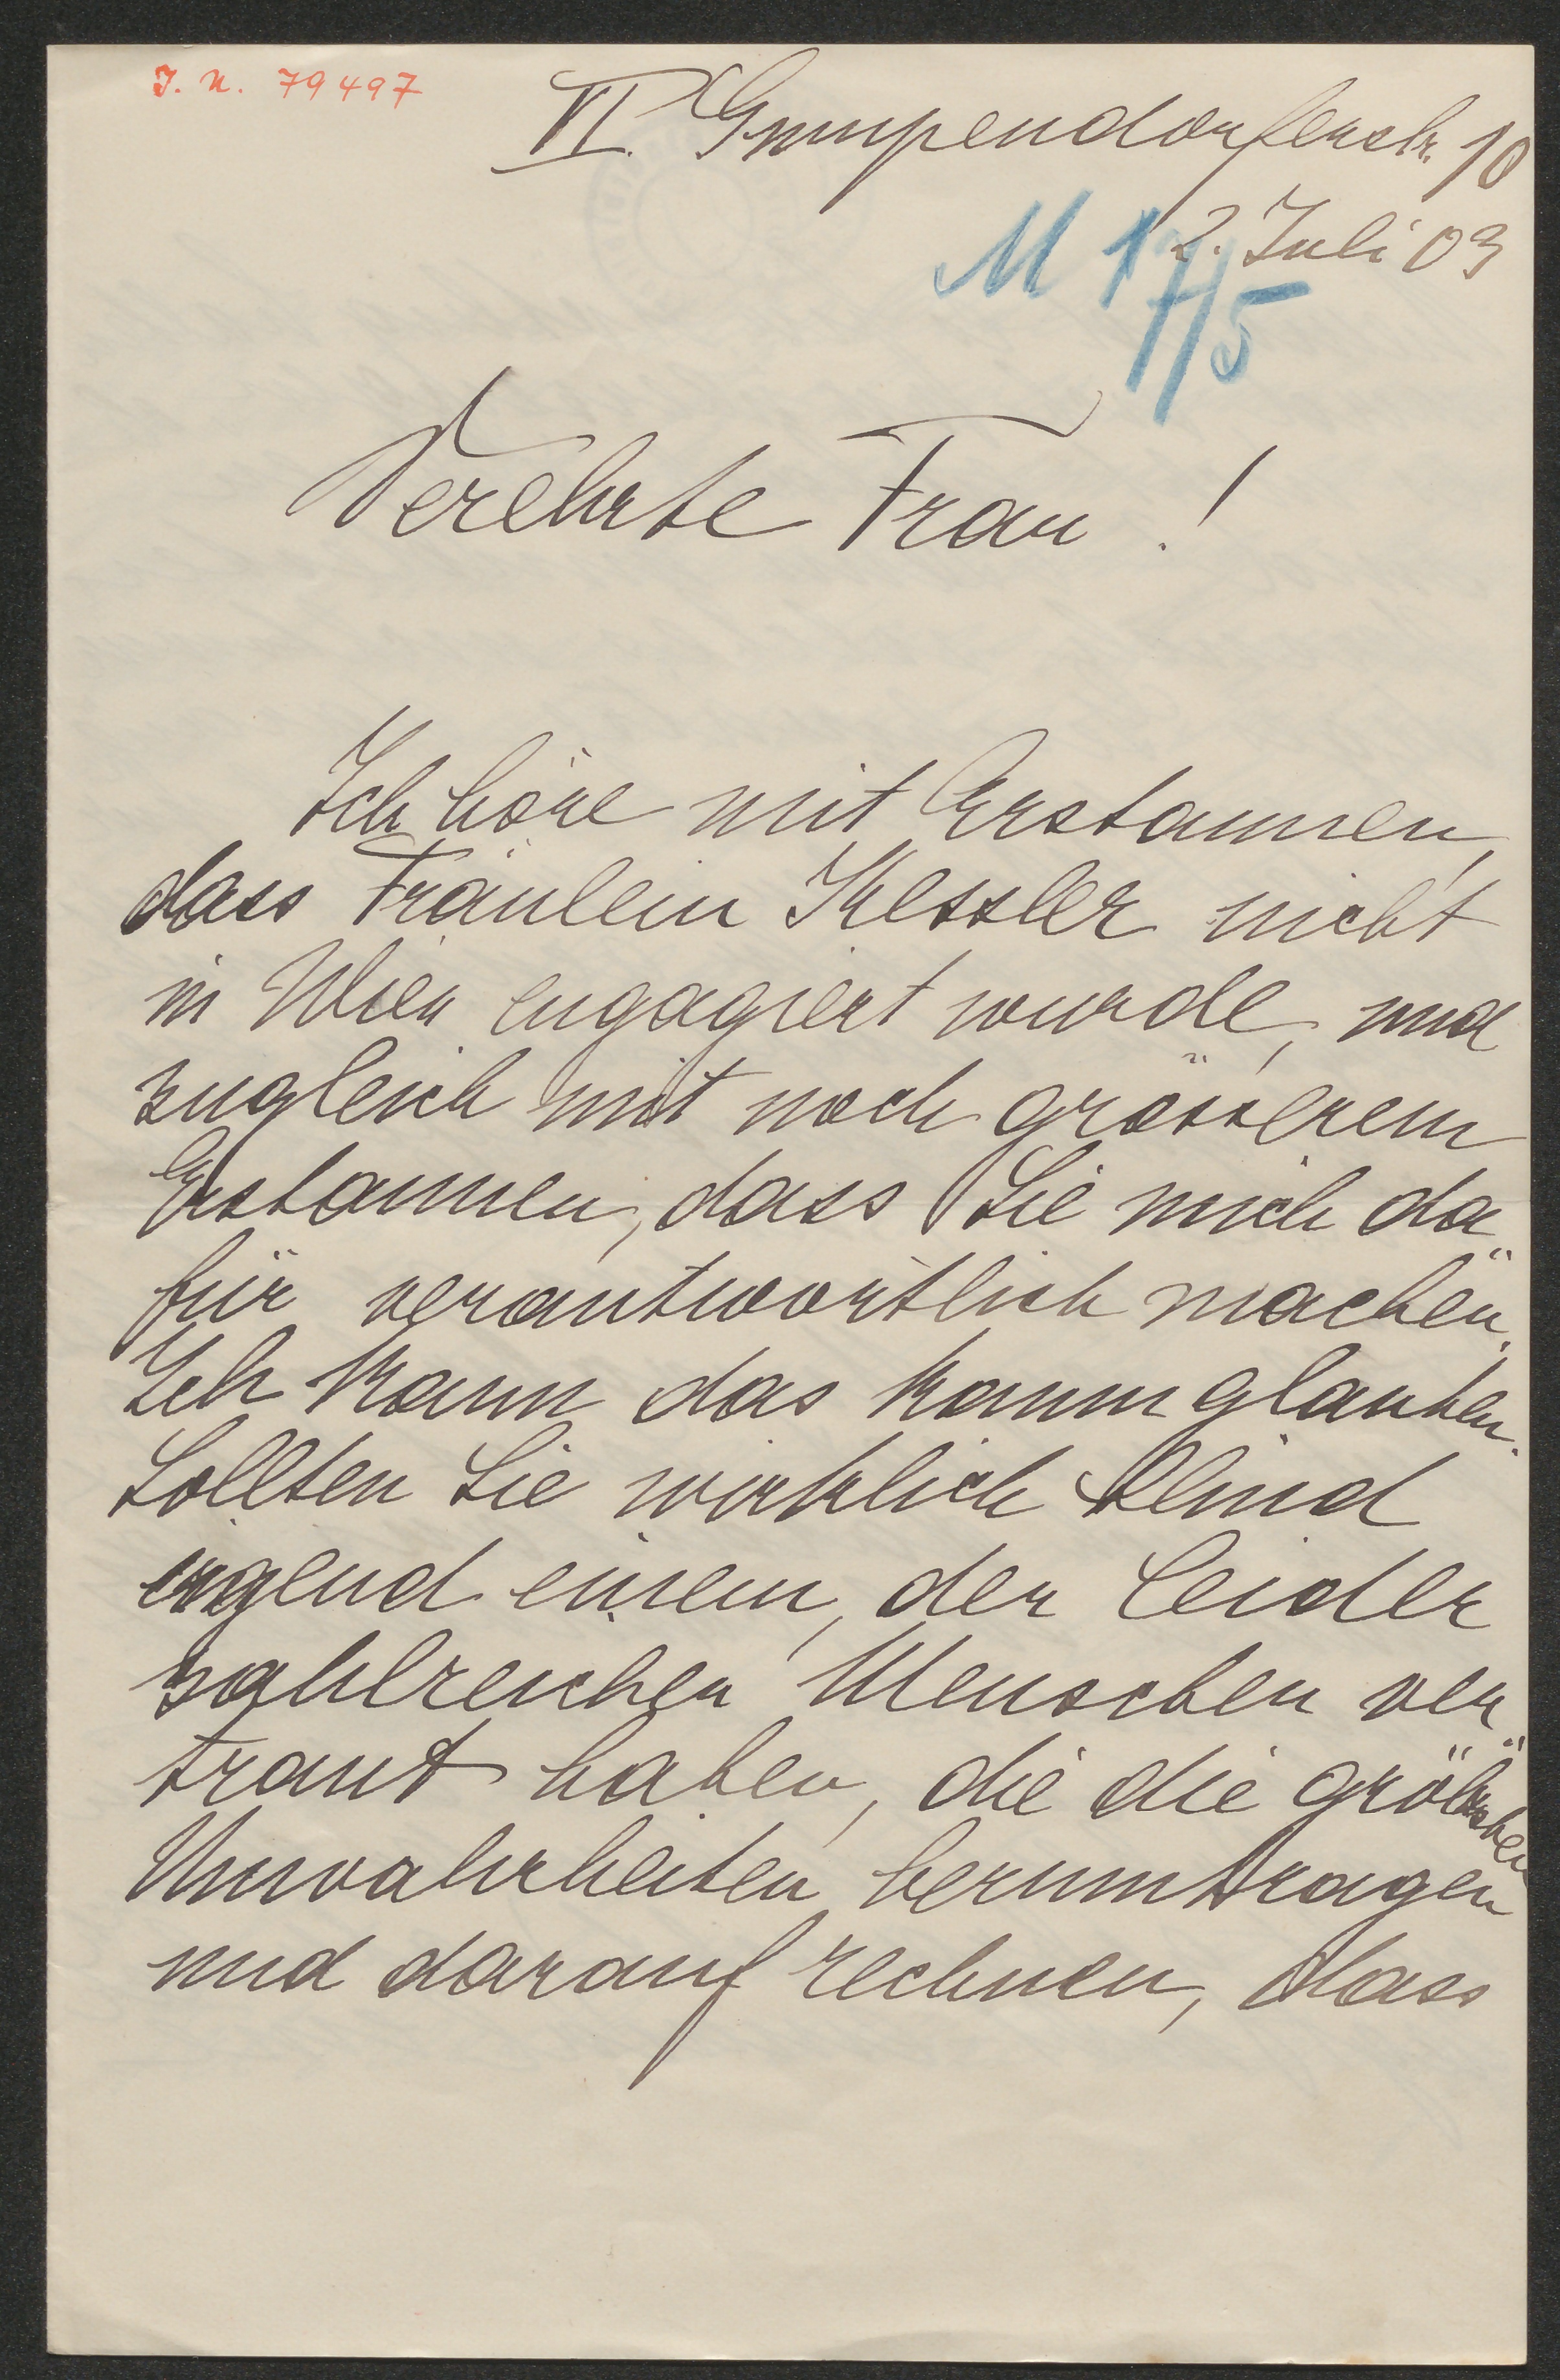 J. N. 79497
VI. Gumpendorferstr. 10
2. Juli 03
M 17/5
Verehrte Frau!
Ich höre mit Erstaunen,
dass Fräulein Kessler nicht
in Wien engagiert wurde, und
zugleich mit noch grösserem
Erstaunen, dass Sie mich da
für verantwortlich machen.
Ich kann das kaum glauben.
Sollten Sie wirklich blind
irgend einem, der leider
zahlreichen Menschen ver
traut haben, die die gröbsten
Unwahrheiten herumtragen
und darauf rechnen, dass